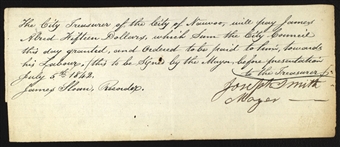 The City Treasurer of the City of Nauvoo, will pay James
Allred Fifteen Dollars, which Sum the City Council
this day granted, and Ordered to be paid to him, towards
his Labour, (this to be Signed by the Mayor, before presentation
to the Treasurer
July 5th 1842.
James Sloan, Recorder.
Joseph Smith
Mayor